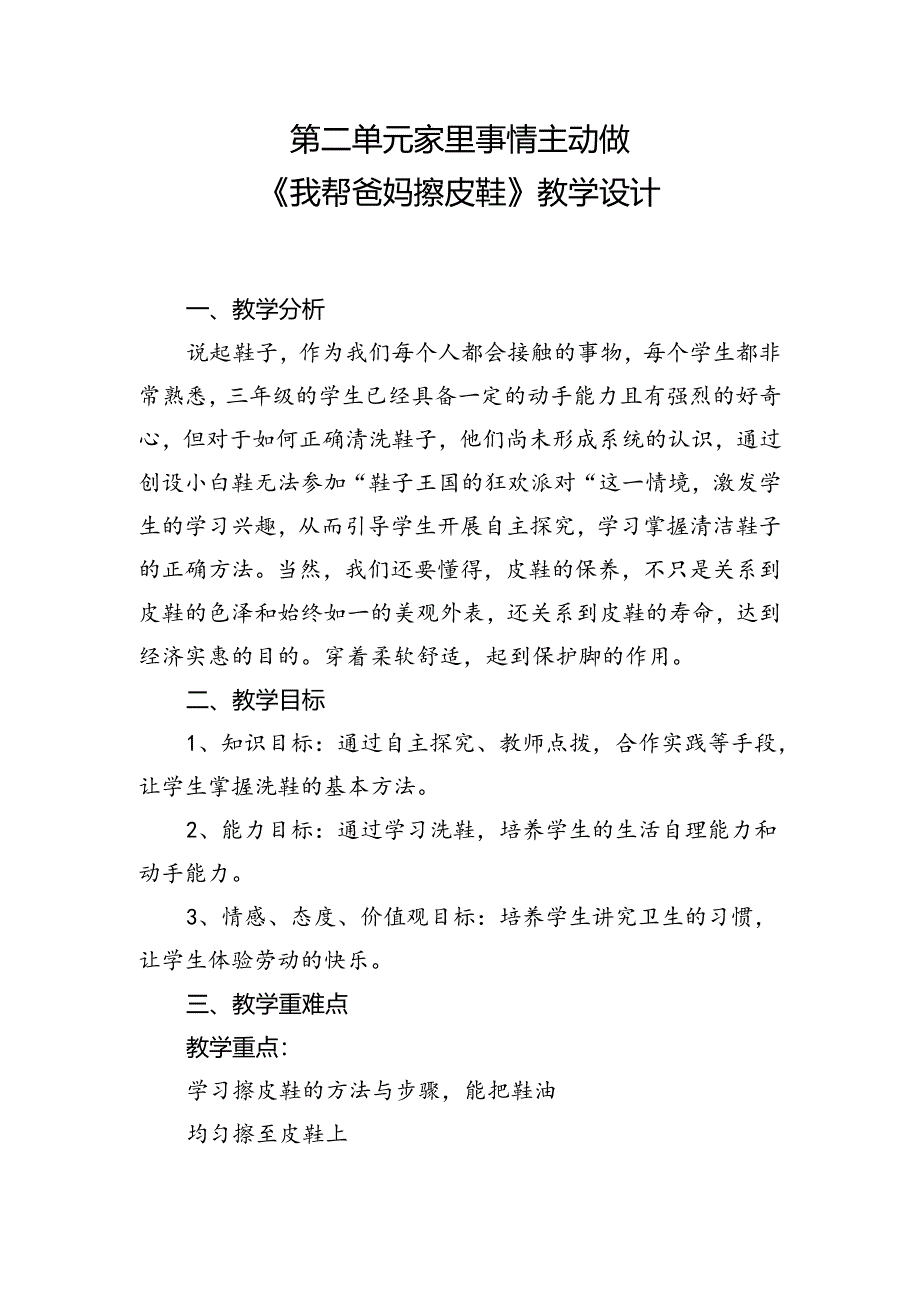 第二单元家里事情主动做
《我帮爸妈擦皮鞋》教学设计
一、教学分析
说起鞋子，作为我们每个人都会接触的事物，每个学生都非
常熟悉，三年级的学生已经具备一定的动手能力且有强烈的好奇
心，但对于如何正确清洗鞋子，他们尚未形成系统的认识，通过
创设小白鞋无法参加“鞋子王国的狂欢派对“这一情境，激发学
生的学习兴趣，从而引导学生开展自主探究，学习掌握清洁鞋子
的正确方法。当然，我们还要懂得，皮鞋的保养，不只是关系到
皮鞋的色泽和始终如一的美观外表，还关系到皮鞋的寿命，达到
经济实惠的目的。穿着柔软舒适，起到保护脚的作用。
二、教学目标
1、知识目标：通过自主探究、教师点拨，合作实践等手段，
让学生掌握洗鞋的基本方法。
2、能力目标：通过学习洗鞋，培养学生的生活自理能力和
动手能力。
3、情感、态度、价值观目标：培养学生讲究卫生的习惯，
让学生体验劳动的快乐。
三、教学重难点
教学重点：
学习擦皮鞋的方法与步骤，能把鞋油
均匀擦至皮鞋上